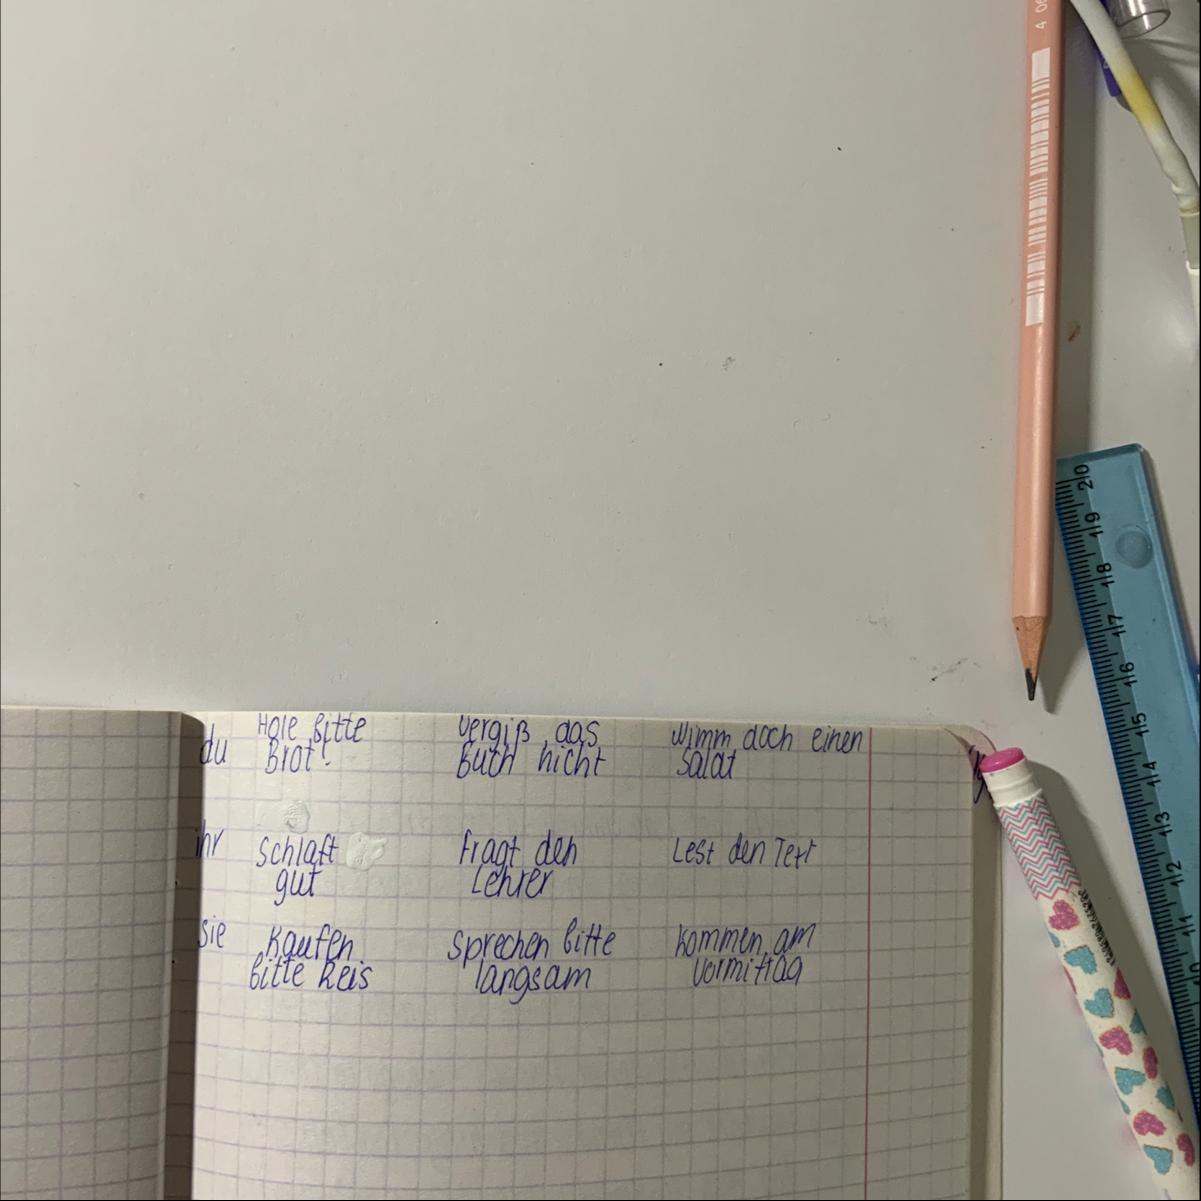 du
Hole bitte
Brot!
vergiß das
Buch nicht
Nimm doch einen
Salat
ihr
Schlaft
gut
Fragt den
Lehrer
Lest den Text
sie
Kaufen
bitte Reis
Sprechen bitte
langsam
Kommen am
Vormittag
4
20
19
18
17
16
15
14
13
12